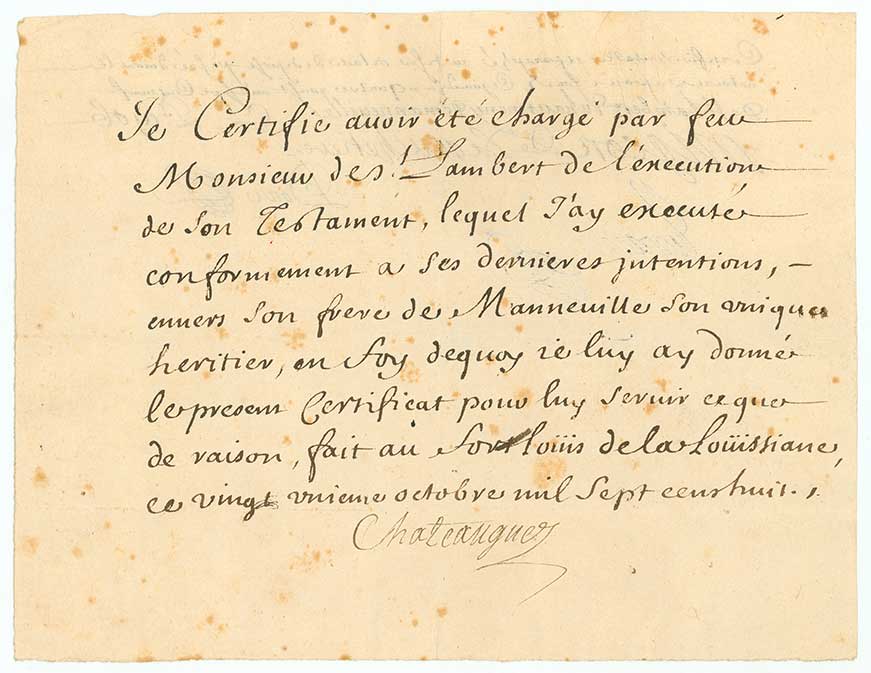 Je Certifie auoir été chargé par feu
Monsieur de St. Lambert de l'éxecution
de son Testament, lequel J'ay executé
conformement a ses dernieres jntentions,
enuers son frere de Manneville son vnique
heritier, en foy dequoy ie luy ay donné
le present Certificat pour luy seruir ce que
de raison, fait au Fort loüis de la Loüissiane,
ce vingt vnieme octobre mil sept cens huit.
Chateauguey